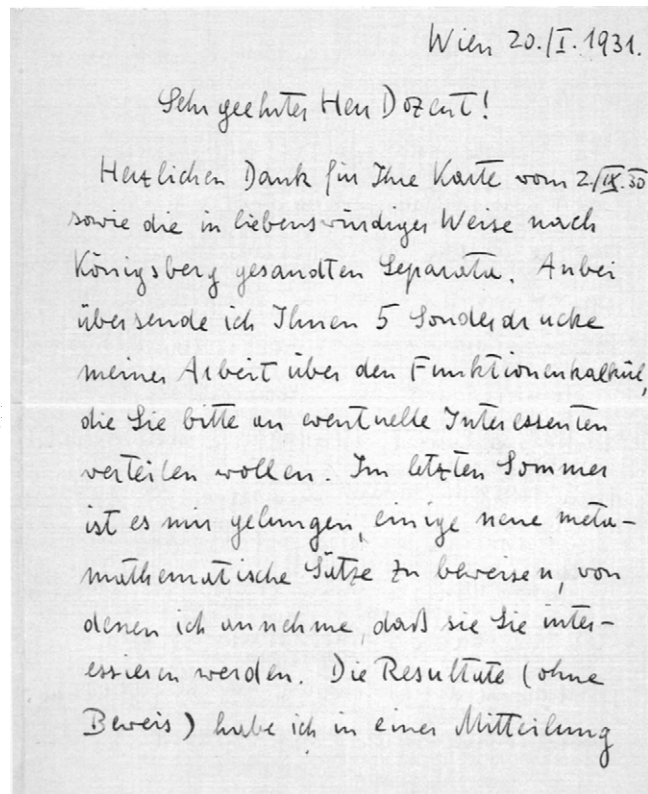 Wien 20./I. 1931.
Sehr geehrter Herr Dozent!
Herzlichen Dank für Ihre Karte vom 2./IX. 30
sowie die in liebenswürdiger Weise nach
Königsberg gesandten Separata. Anbei
übersende ich Ihnen 5 Sonderdrucke
meiner Arbeit über den Funktionenkalkül,
die Sie bitte an eventuelle Interessenten
verteilen wollen. Im letzten Sommer
ist es mir gelungen, einige neue meta-
mathematische Sätze zu beweisen, von
denen ich annehme, daß sie Sie inter-
essieren werden. Die Resultate (ohne
Beweis) habe ich in einer Mitteilung